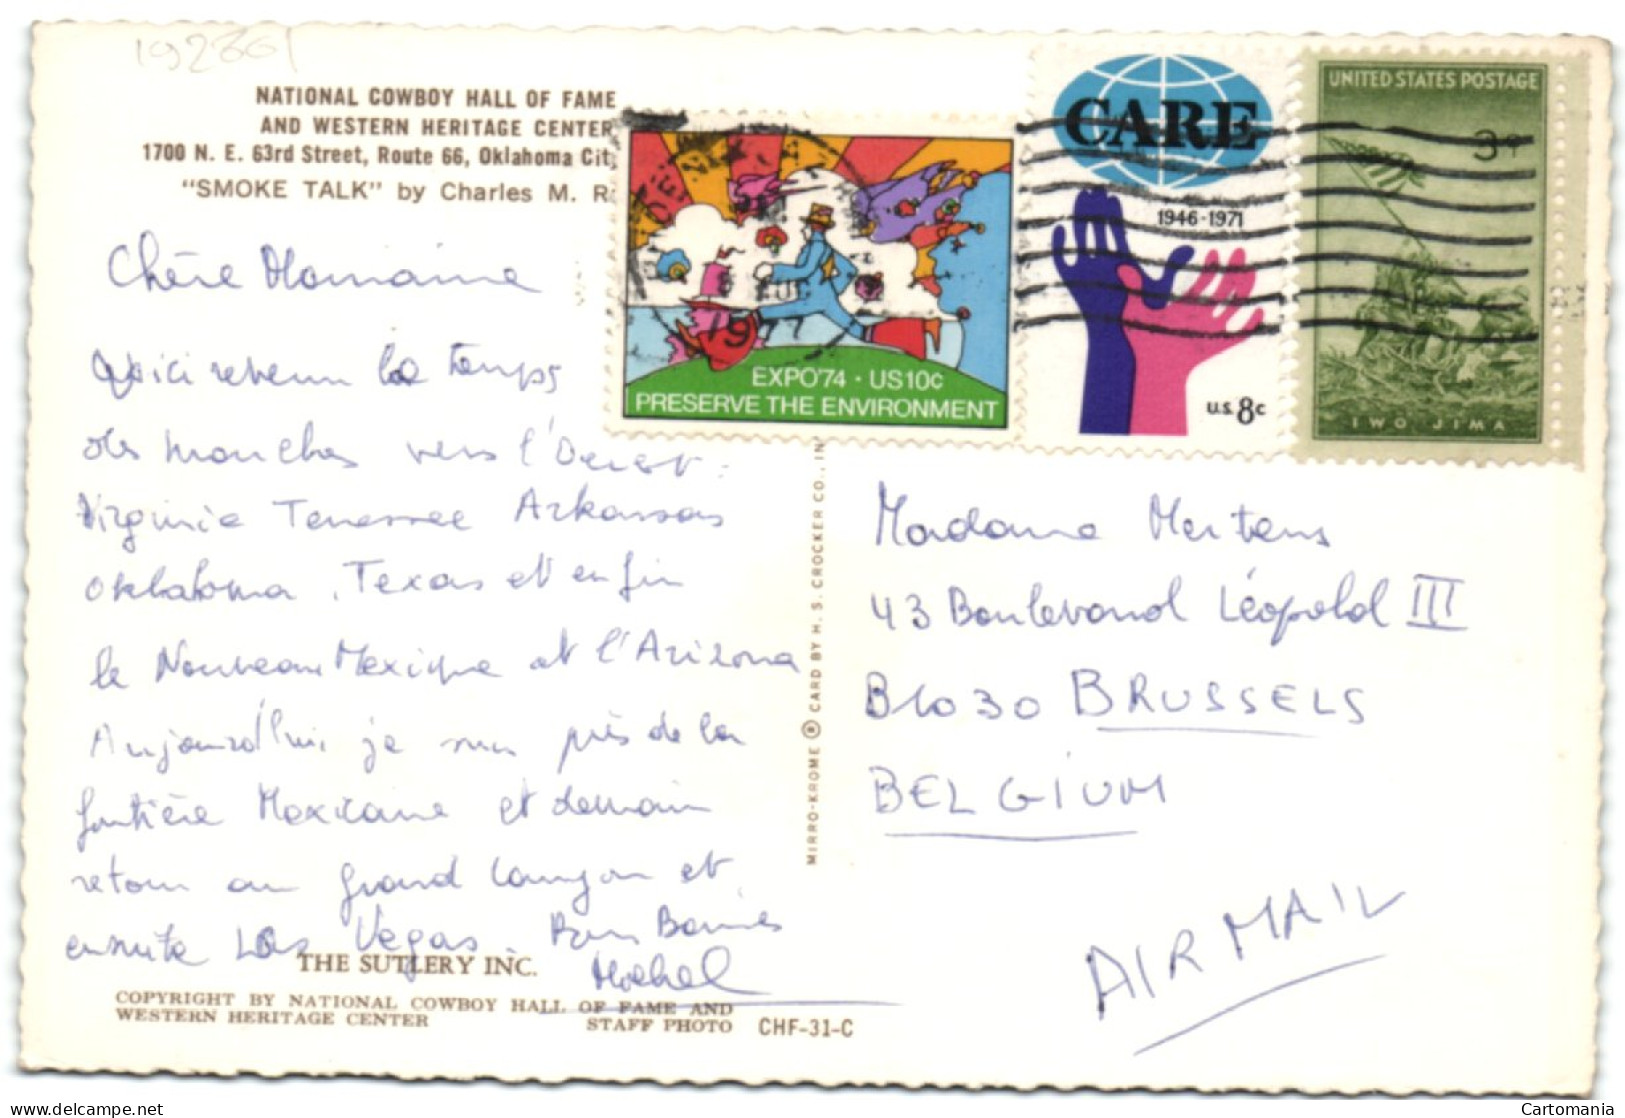 19236
NATIONAL COWBOY HALL OF FAME
AND WESTERN HERITAGE CENTER
1700 N. E. 63rd Street, Route 66, Oklahoma Cit
"SMOKE TALK" by Charles M. R
Chère Momaine
Voici revenu le temps
des marches vers l'Ouest :
Virginie Tenessee Arkansas
Oklahoma, Texas et enfin
le Nouveau Mexique et l'Arizona
Aujourd'hui je suis près de la
frontière Mexicaine et demain
retour au grand Canyon et
ensuite Las Vegas. Bons Baisers
Michel
THE SUTLERY INC.
COPYRIGHT BY NATIONAL COWBOY HALL OF FAME AND
WESTERN HERITAGE CENTER STAFF PHOTO CHF-31-C
MIRRO-KROME ® CARD BY H. S. CROCKER CO., IN
PHOENIX
1977
EXPO'74 · US10c
PRESERVE THE ENVIRONMENT
CARE
1946-1971
U.S. 8c
UNITED STATES POSTAGE
3¢
IWO JIMA
Madame Mertens
43 Boulevard Léopold III
B1030 BRUSSELS
BELGIUM
AIR MAIL
Cartomania